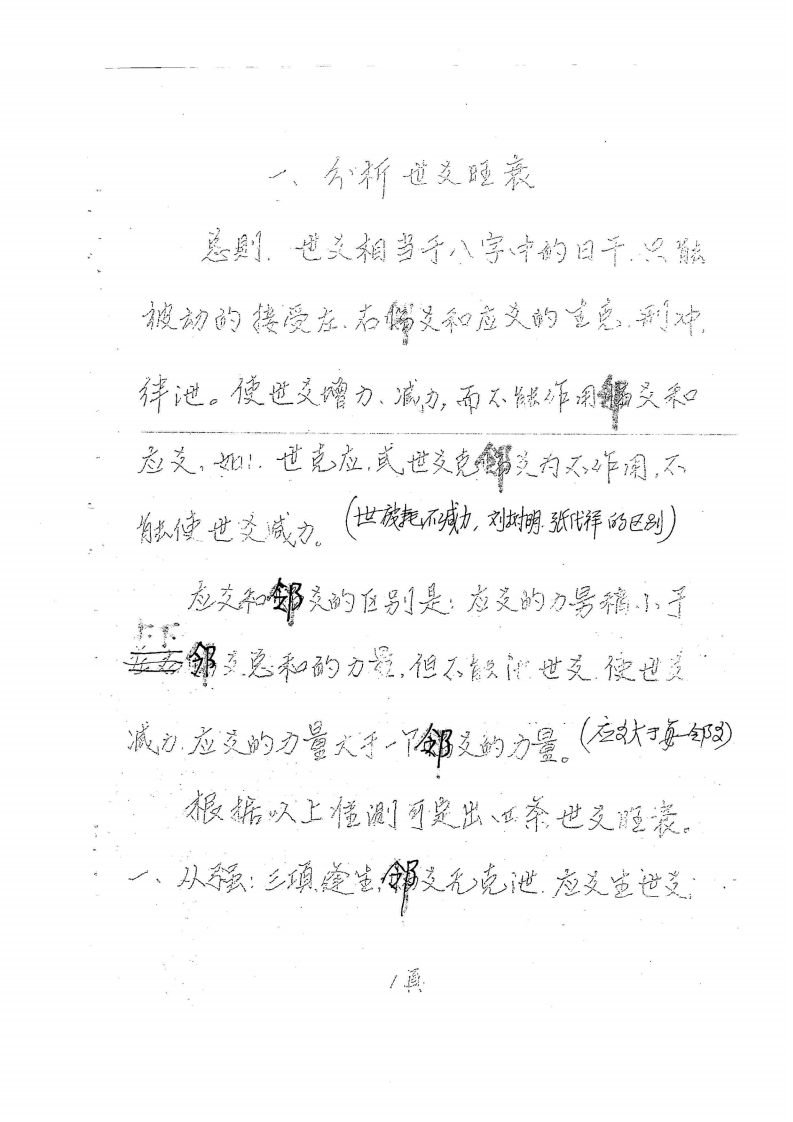 一、分析世爻旺衰
总则. 世爻相当于八字中的日干.只能
被动的接受左.右邻爻和应爻的生克.刑冲,
伴泄。使世爻增力、减力,而不能作用邻爻和
应爻、如:. 世克应,或世爻克邻爻为不作用,不
能使世爻减力。(世被耗,不减力, 刘树明.张代祥的区别)
应爻和邻爻的区别是:应爻的力量稍小于
上下
邻爻总和的力量,但不能泄世爻.使世爻
减力.应爻的力量大于一个邻爻的力量。(应爻大于每一邻爻)
根据以上推测可定出、四条世爻旺衰。
一、从强:三项逢生,邻爻无克泄.应爻生世爻;
1页